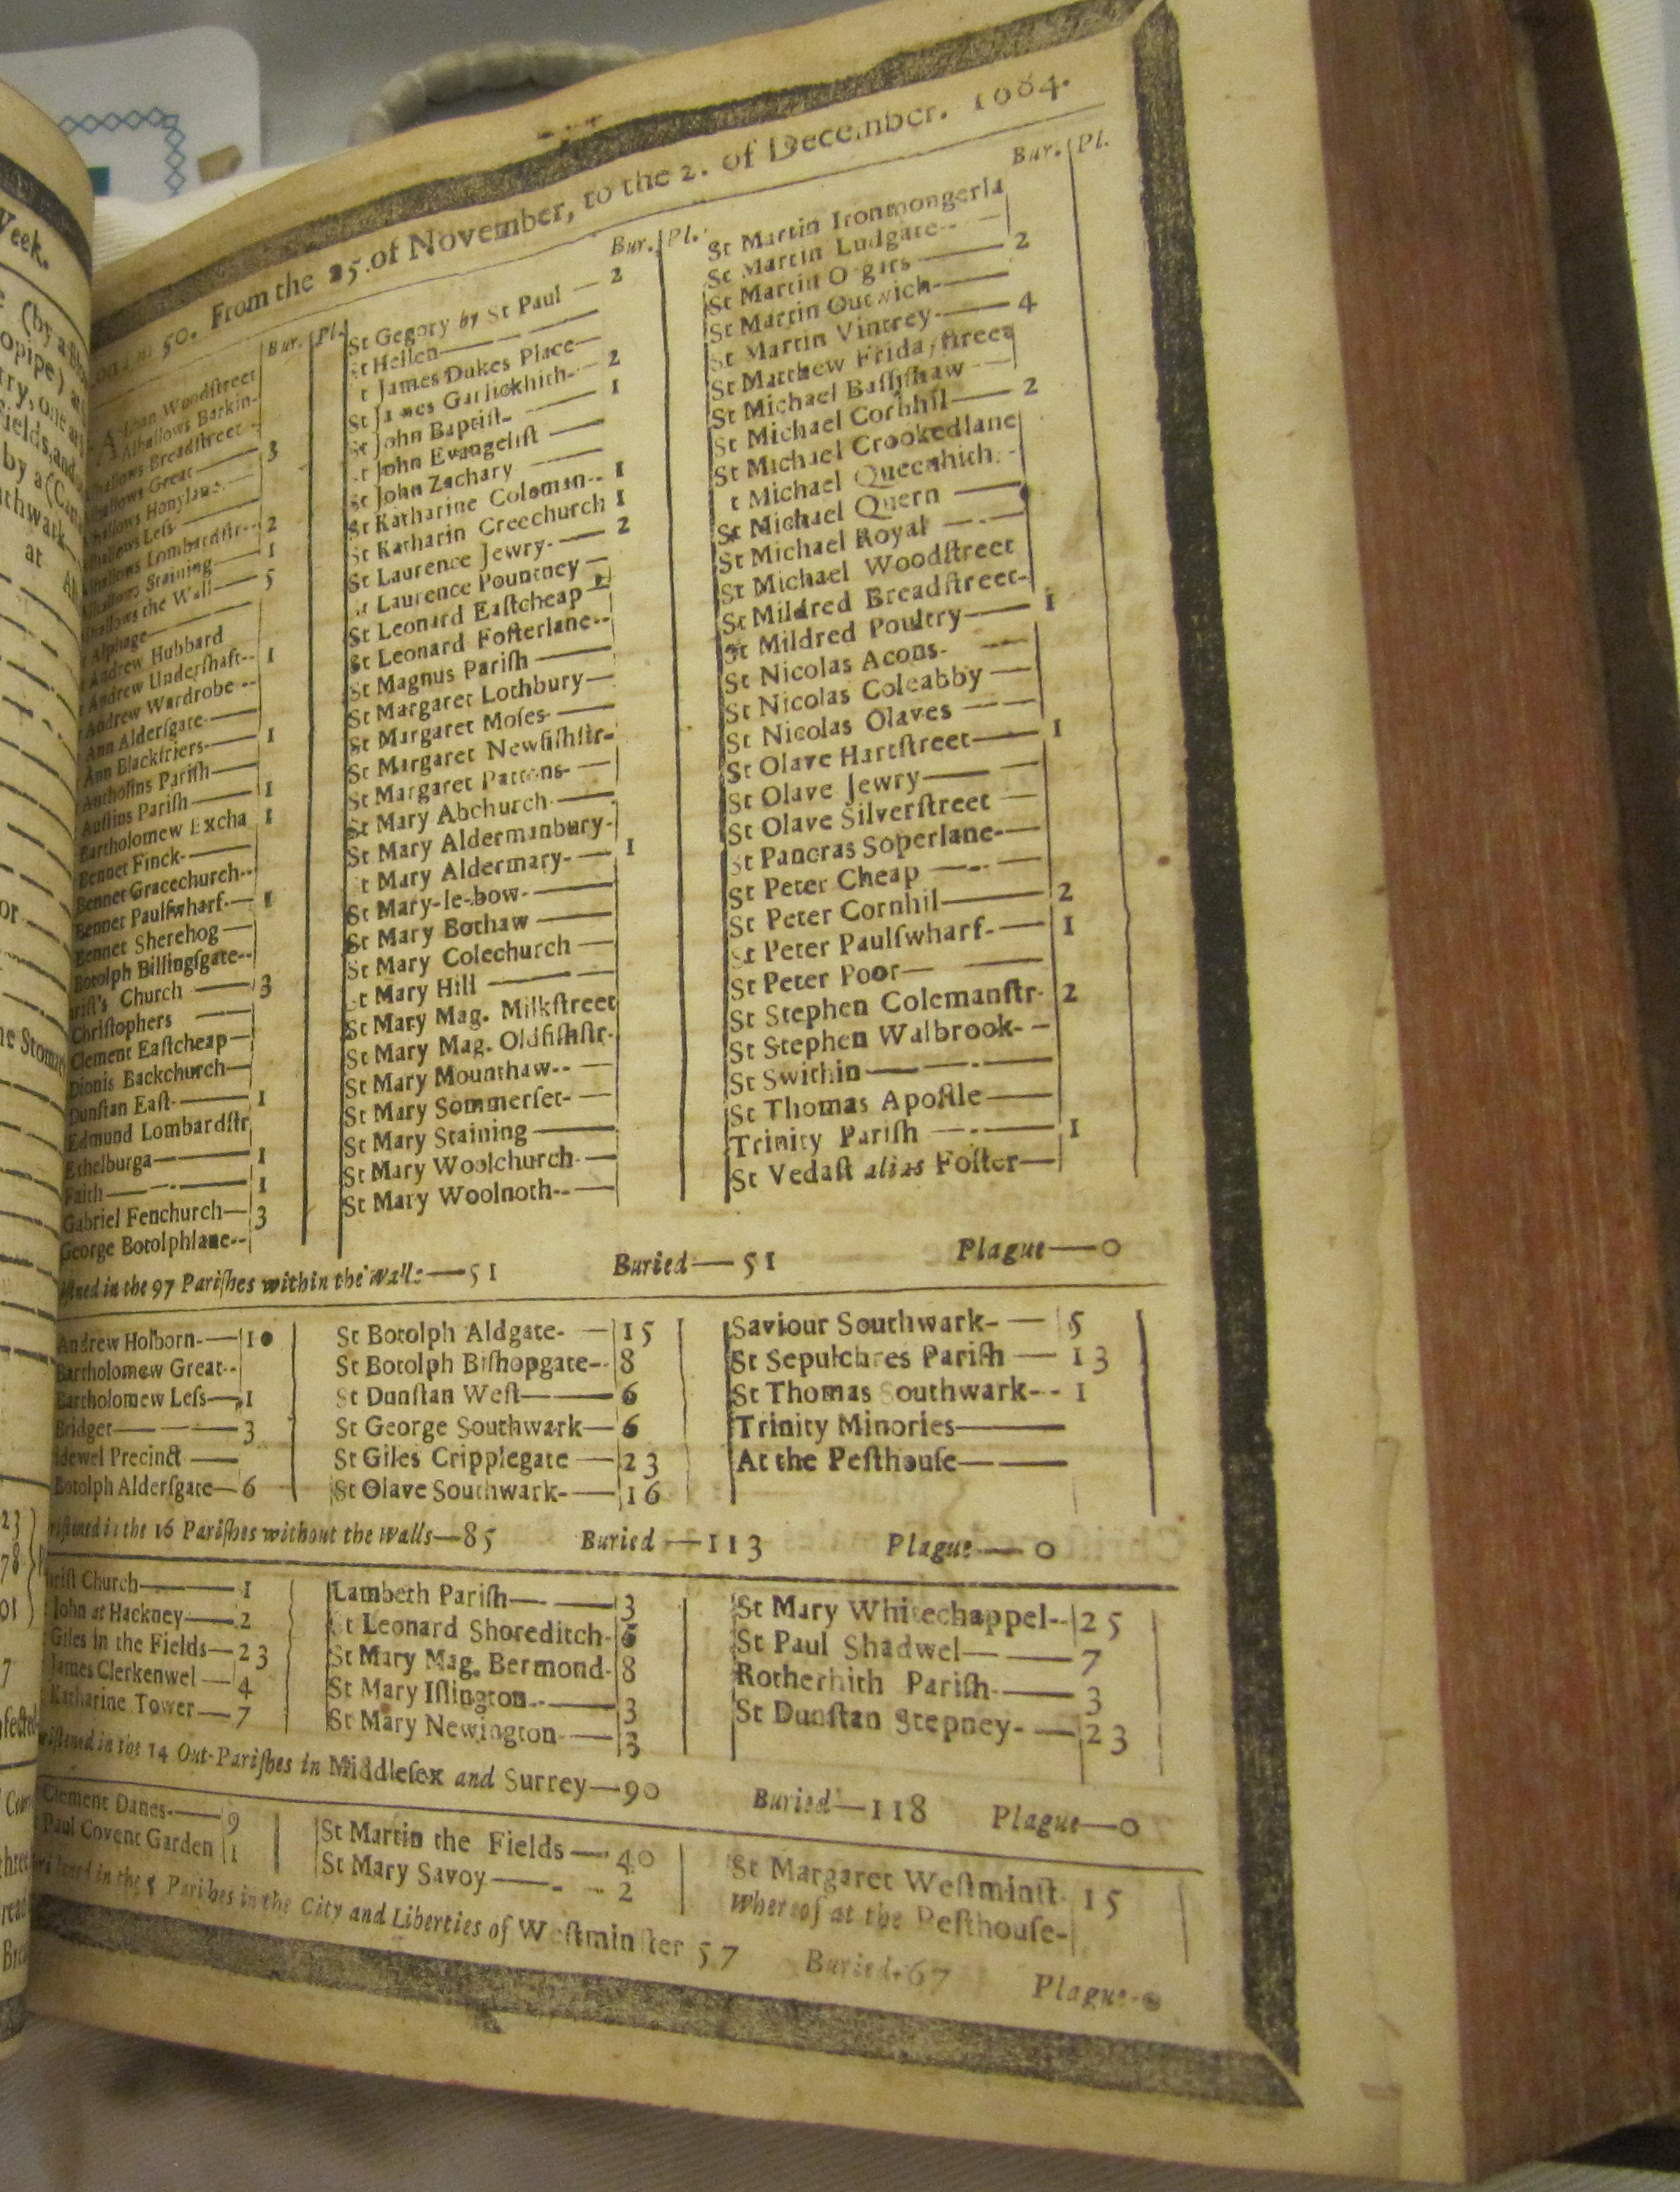 Week.
(by a
opipe)
fields, and
by a (Can
thwark
at
or
he Stomac
23
78
7
50. From the 25. of November, to the 2. of December. 1664.
Bur. Pl.
Alban Woodſtreet
Alhallows Barkin-
hallows Breadſtreet
hallows Great 3
hallows Honylane
hallows Leſs
hallows Lombardſtr 2
hallows Staining 1
hallows the Wall 5
Alphage
Andrew Hubbard
Andrew Underſhaft 1
Andrew Wardrobe
Ann Alderſgate
Ann Blackfriers 1
Anthoſins Pariſh
Auſtins Pariſh 1
Bartholomew Excha 1
Bennet Finck
Bennet Gracechurch
Bennet Paulſwharf 1
Bennet Sherehog
Botolph Billingſgate
riſt's Church 3
Chriſtophers
Clement Eaſtcheap
Dionis Backchurch
Dunſtan Eaſt 1
Edmund Lombardſtr
Ethelburga 1
Faith 1
Gabriel Fenchurch 3
George Botolphlane
Bur. Pl.
St Gegory by St Paul 2
St Hellen
t James Dukes Place
St James Garlickhith 2
St John Baptiſt 1
St John Evangeliſt
St John Zachary
St Katharine Coloman 1
St Katharin Creechurch 1
St Laurence Jewry 2
Laurence Pountney
St Leonard Eaſtcheap
St Leonard Foſterlane
St Magnus Pariſh
St Margaret Lothbury
St Margaret Moſes
St Margaret Newfiſhſtr
St Margaret Pattons
St Mary Abchurch
St Mary Aldermanbury
t Mary Aldermary 1
St Mary-le-bow
St Mary Bothaw
St Mary Colechurch
t Mary Hill
St Mary Mag. Milkſtreet
St Mary Mag. Oldfiſhſtr
St Mary Mounthaw
St Mary Sommerſet
St Mary Staining
St Mary Woolchurch
St Mary Woolnoth
Bur. Pl.
St Martin Ironmongerla
St Martin Ludgate
St Martin O gars 2
St Martin Outwich
St Martin Vintrey 4
St Matthew Fridayſtreet
St Michael Baſſiſhaw
St Michael Cornhil 2
St Michael Crookedlane
t Michael Queenhith
St Michael Quern
St Michael Royal
St Michael Woodſtreet
St Mildred Breadſtreet
St Mildred Poultry 1
St Nicolas Acons
St Nicolas Coleabby
St Nicolas Olaves
St Olave Hartſtreet 1
St Olave Jewry
St Olave Silverſtreet
St Pancras Soperlane
St Peter Cheap
St Peter Cornhil 2
St Peter Paulſwharf 1
St Peter Poor
St Stephen Colemanſtr 2
St Stephen Walbrook
St Swithin
St Thomas Apoſtle
Trinity Pariſh 1
St Vedaſt alias Foſter
ſtned in the 97 Pariſhes within the Walls—51 Buried—51 Plague—0
Andrew Holborn 10
Bartholomew Great
Bartholomew Leſs 1
Bridget 3
idewel Precinct
Botolph Alderſgate 6
St Botolph Aldgate 15
St Botolph Biſhopgate 8
St Dunſtan Weſt 6
St George Southwark 6
St Giles Cripplegate 23
St Olave Southwark 16
Saviour Southwark 5
St Sepulchres Pariſh 13
St Thomas Southwark 1
Trinity Minories
At the Peſthouſe
riſtned in the 16 Pariſhes without the Walls—85 Buried—113 Plague—0
hriſt Church 1
John at Hackney 2
Giles in the Fields 23
James Clerkenwel 4
Katharine Tower 7
Lambeth Pariſh 3
St Leonard Shoreditch 6
St Mary Mag. Bermond 8
St Mary Iſlington 3
St Mary Newington 3
St Mary Whitechappel 25
St Paul Shadwel 7
Rotherhith Pariſh 3
St Dunſtan Stepney 23
riſtened in the 14 Out-Pariſhes in Middleſex and Surrey—90 Buried—118 Plague—0
Clement Danes 9
Paul Covent Garden 1
St Martin the Fields 40
St Mary Savoy 2
St Margaret Weſtminſt 15
Whereof at the Peſthouſe
in the 5 Pariſhes in the City and Liberties of Weſtminſter 57 Buried 67 Plague 0